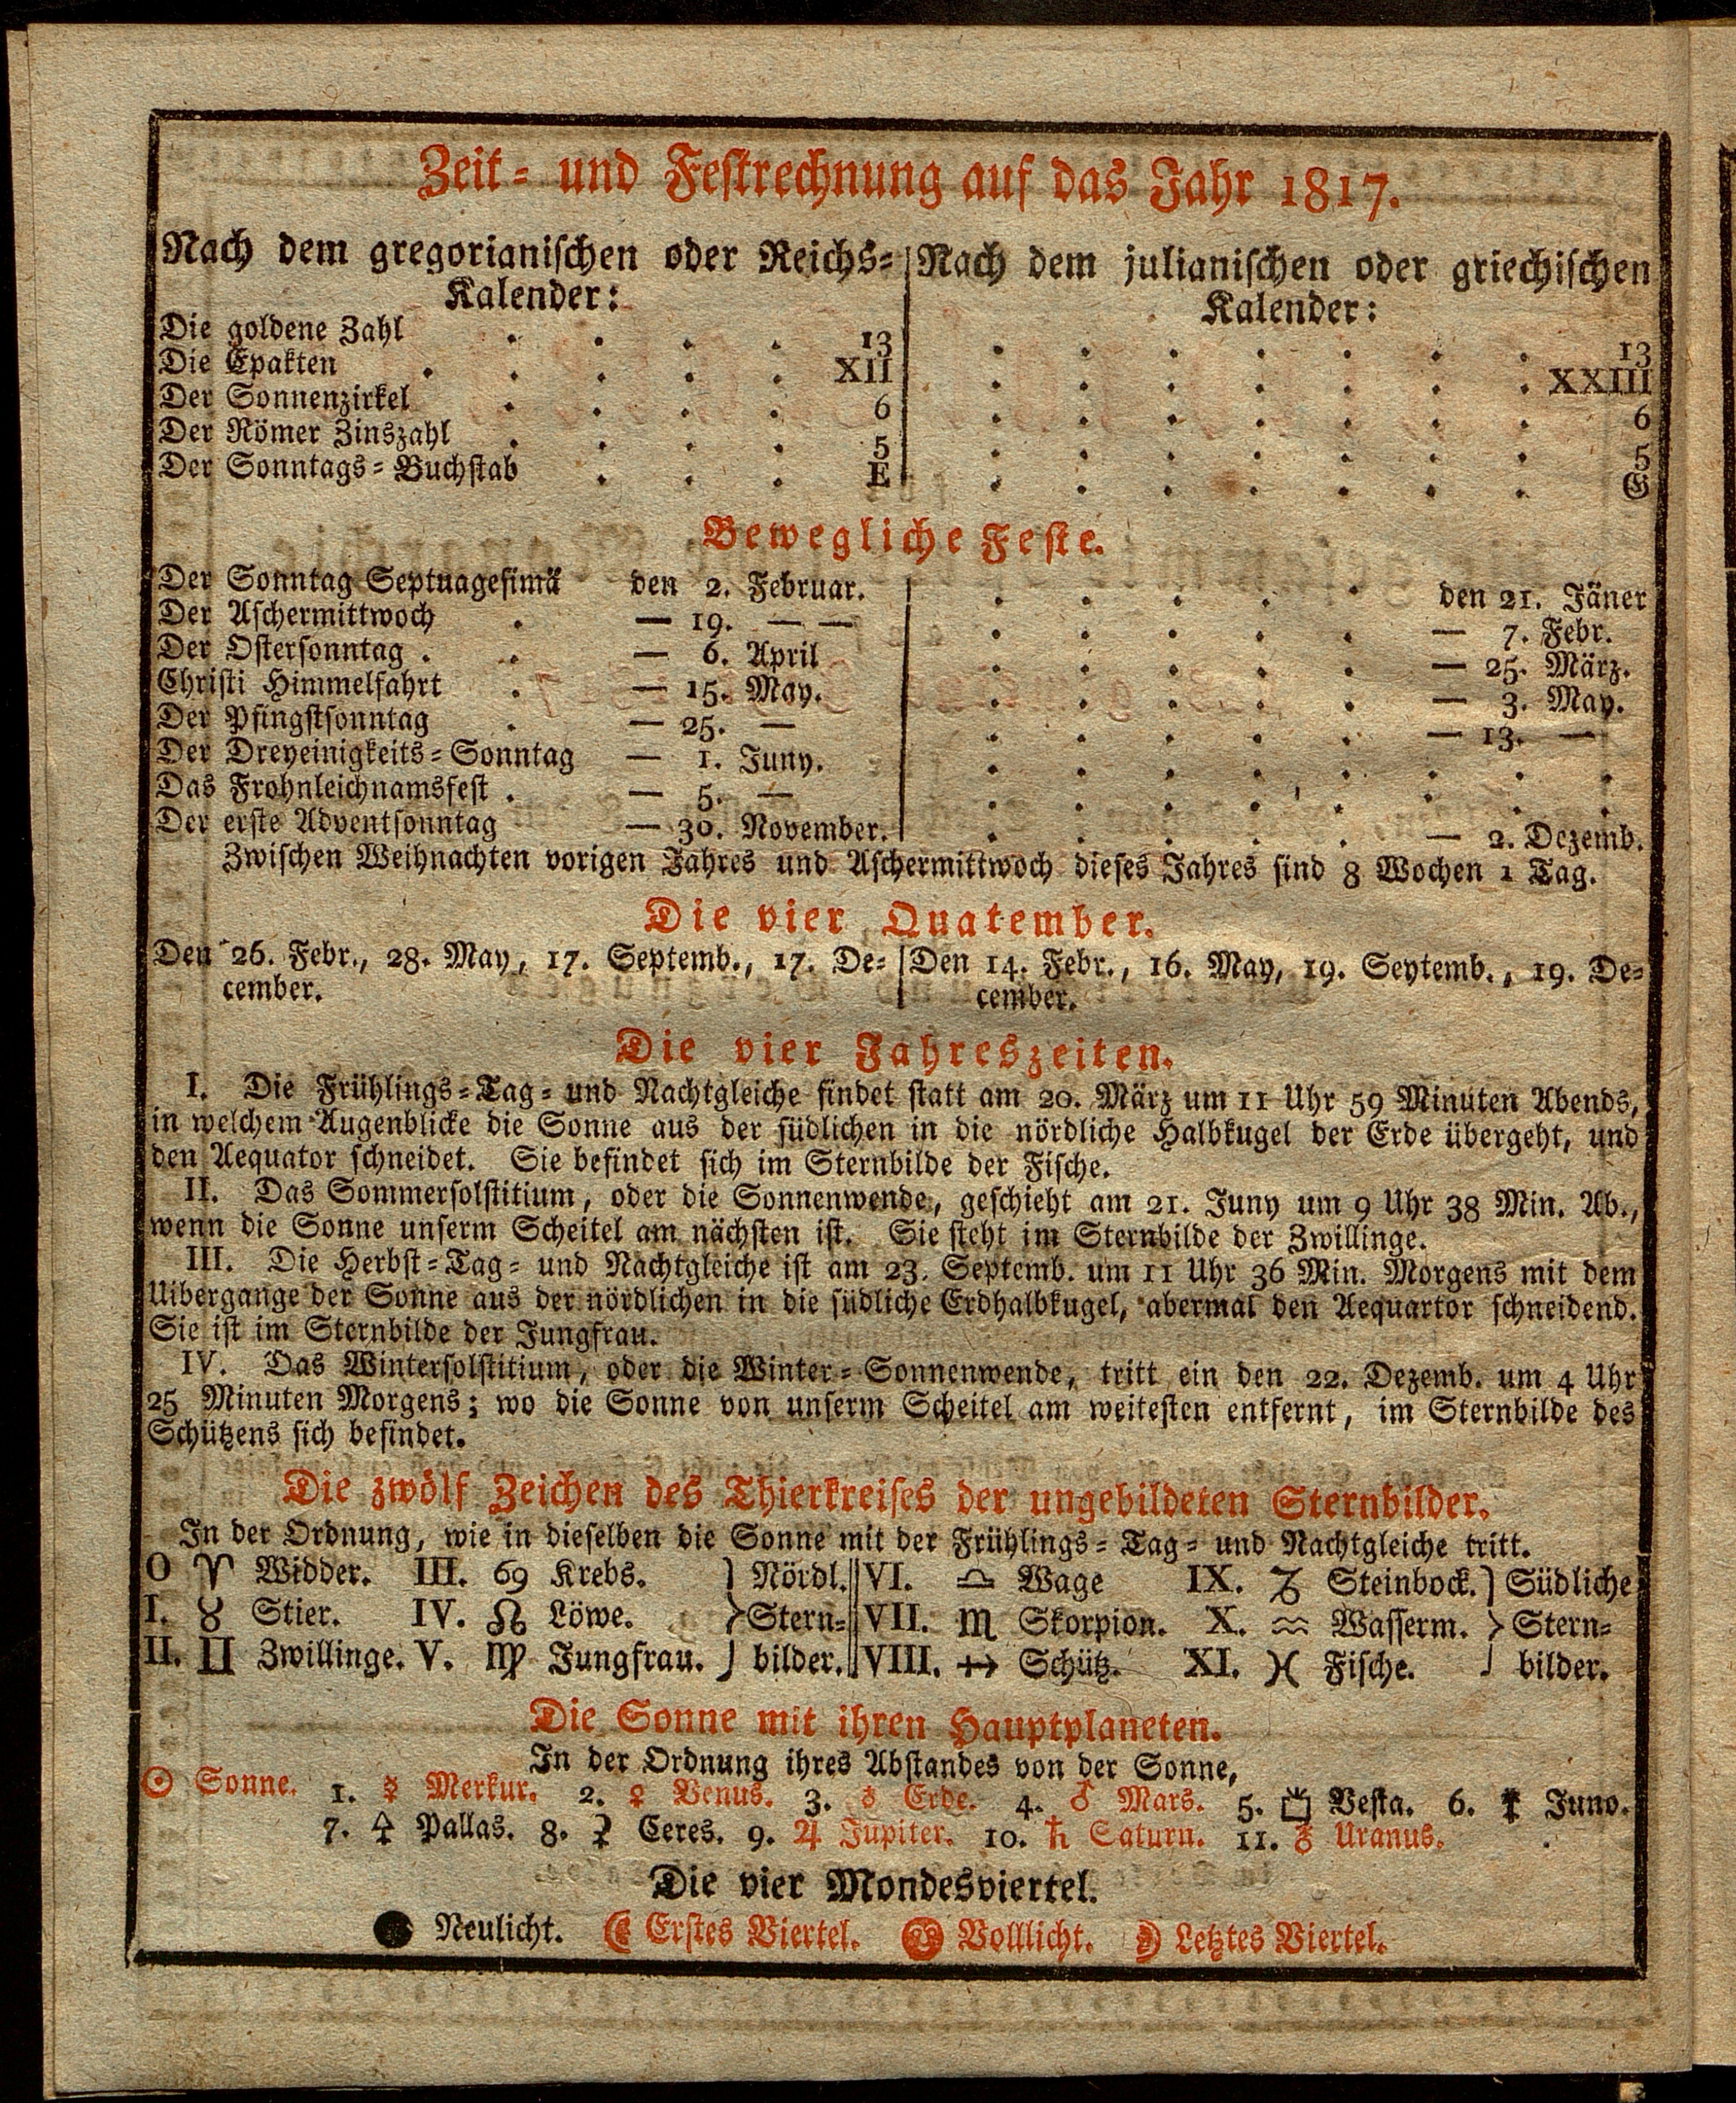 Zeit- und Festrechnung auf das Jahr 1817.
Nach dem gregorianischen oder Reichs-
Kalender:
Nach dem julianischen oder griechischen
Kalender:
Die goldene Zahl . . . . 13 | . . . . . . . 13
Die Epakten . . . . . XII | . . . . . . . XXIII
Der Sonnenzirkel . . . . 6 | . . . . . . . 6
Der Römer Zinszahl . . . . 5 | . . . . . . . 5
Der Sonntags-Buchstab . . . E | . . . . . . . G
Bewegliche Feste.
Der Sonntag Septuagesimä den 2. Februar. | . . . . . den 21. Jäner
Der Aschermittwoch . — 19. — — | . . . . . — 7. Febr.
Der Ostersonntag . . — 6. April | . . . . . — 25. März.
Christi Himmelfahrt . — 15. May. | . . . . . — 3. May.
Der Pfingstsonntag . — 25. — | . . . . . — 13. —
Der Dreyeinigkeits-Sonntag — 1. Juny. | . . . . . . . .
Das Frohnleichnamsfest . — 5. — | . . . . . . . .
Der erste Adventsonntag — 30. November. | . . . . . — 2. Dezemb.
Zwischen Weihnachten vorigen Jahres und Aschermittwoch dieses Jahres sind 8 Wochen 1 Tag.
Die vier Quatember.
Den 26. Febr., 28. May, 17. Septemb., 17. De-
cember.
Den 14. Febr., 16. May, 19. Septemb., 19. De-
cember.
Die vier Jahreszeiten.
I. Die Frühlings-Tag- und Nachtgleiche findet statt am 20. März um 11 Uhr 59 Minuten Abends,
in welchem Augenblicke die Sonne aus der südlichen in die nördliche Halbkugel der Erde übergeht, und
den Aequator schneidet. Sie befindet sich im Sternbilde der Fische.
II. Das Sommersolstitium, oder die Sonnenwende, geschieht am 21. Juny um 9 Uhr 38 Min. Ab.,
wenn die Sonne unserm Scheitel am nächsten ist. Sie steht im Sternbilde der Zwillinge.
III. Die Herbst-Tag- und Nachtgleiche ist am 23. Septemb. um 11 Uhr 36 Min. Morgens mit dem
Uibergange der Sonne aus der nördlichen in die südliche Erdhalbkugel, abermal den Aequartor schneidend.
Sie ist im Sternbilde der Jungfrau.
IV. Das Wintersolstitium, oder die Winter-Sonnenwende, tritt ein den 22. Dezemb. um 4 Uhr
25 Minuten Morgens; wo die Sonne von unserm Scheitel am weitesten entfernt, im Sternbilde des
Schützens sich befindet.
Die zwölf Zeichen des Thierkreises der ungebildeten Sternbilder.
In der Ordnung, wie in dieselben die Sonne mit der Frühlings-Tag- und Nachtgleiche tritt.
O ♈ Widder. III. ♋ Krebs. } Nördl. || VI. ♎ Wage IX. ♑ Steinbock. } Südliche
I. ♉ Stier. IV. ♌ Löwe. } Stern- || VII. ♏ Skorpion. X. ♒ Wasserm. } Stern-
II. ♊ Zwillinge. V. ♍ Jungfrau. } bilder. || VIII. ♐ Schütz. XI. ♓ Fische. } bilder.
Die Sonne mit ihren Hauptplaneten.
In der Ordnung ihres Abstandes von der Sonne,
☉ Sonne. 1. ☿ Merkur. 2. ♀ Venus. 3. ♁ Erde. 4. ♂ Mars. 5. ⚶ Vesta. 6. ⚵ Juno.
7. ⚴ Pallas. 8. ⚳ Ceres. 9. ♃ Jupiter. 10. ♄ Saturn. 11. ♅ Uranus.
Die vier Mondesviertel.
● Neulicht. ☾ Erstes Viertel. Volllicht. ☽ Letztes Viertel.